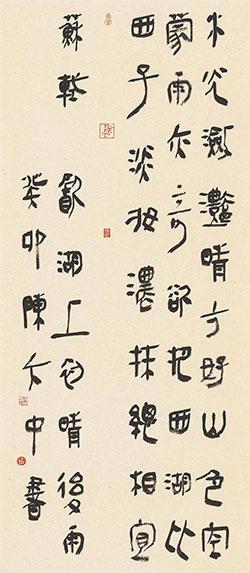 水光瀲灩晴方好山色空
蒙雨亦奇欲把西湖比
西子淡妝濃抹總相宜
蘇軾 飲湖上初晴後雨
癸卯陳中書